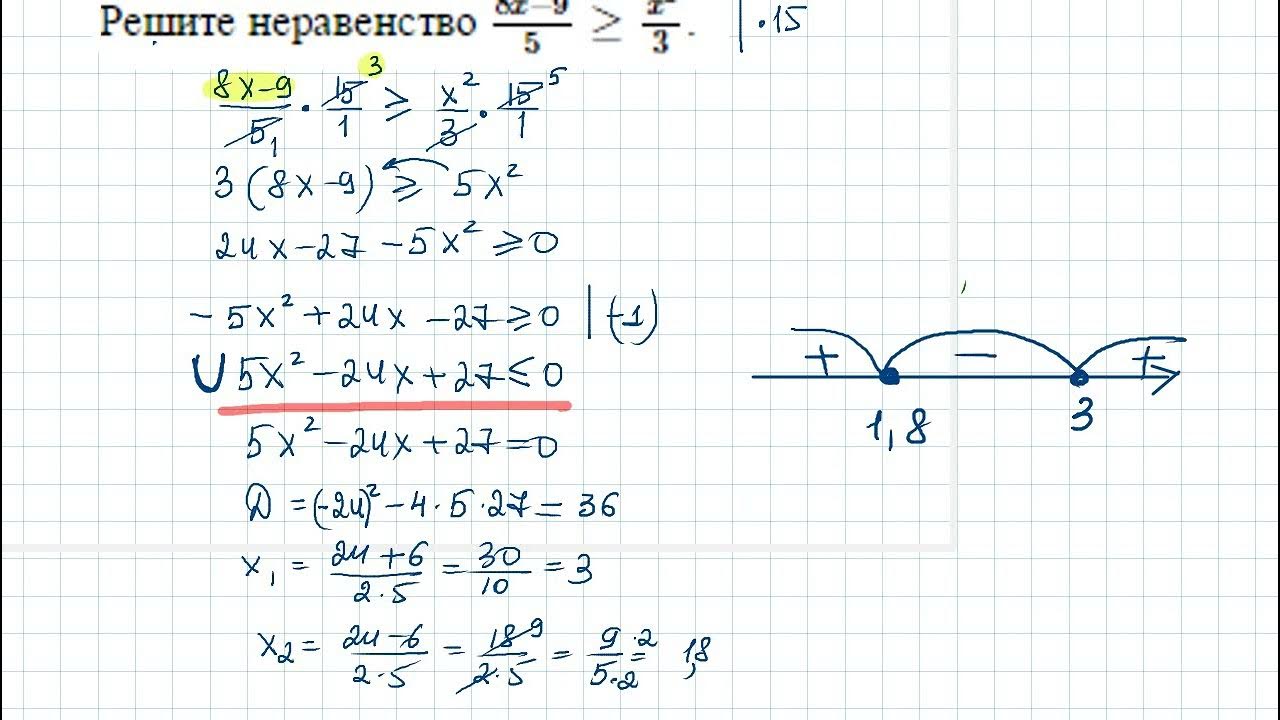 Решите неравенство (8x−9)/5 ≥ x²/3. | ·15
(8x−9)/5 1 · 15 3/1 ≥ x²/3 · 15 5/1
3(8x−9) ≥ 5x²
24x−27−5x² ≥ 0
−5x²+24x−27 ≥ 0 | (−1)
∪ 5x²−24x+27 ≤ 0
5x²−24x+27=0
D = (−24)²−4·5·27 = 36
x₁ = (24+6)/(2·5) = 30/10 = 3
x₂ = (24−6)/(2·5) = 18 9/(2·5) = (9·2)/(5·2) = 1,8
+ − +
1,8 3